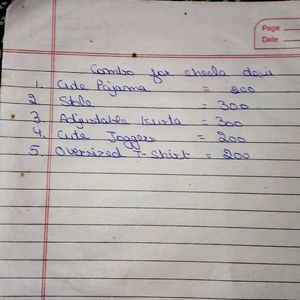 Page
Date
Combo for sheela devi
1. Cute Pajama = 200
2 Stole = 300
3 Adjustable Kurta = 300
4. Cute Joggers = 200
5. Oversized T-Shirt = 200